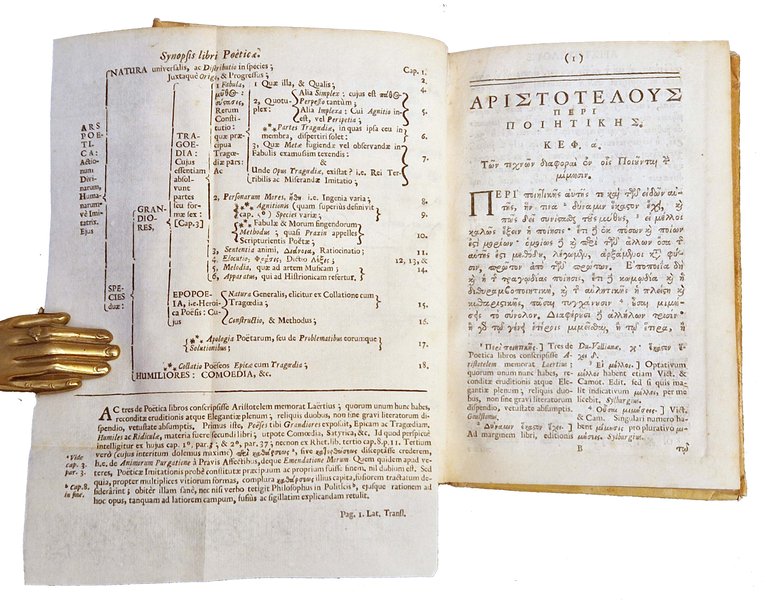 Synopsis libri Poëticæ.
NATURA universalis, ac Distributio in species; Cap. 1.
Juxtaque Origo, & Progressus; 2.
ARS
POE-
TI-
CA:
Actio-
num
Divi-
narum,
Huma-
narum-
ve Imi-
tatrix.
Ejus
SPE-
CIES
duæ:
GRAN-
DIO-
RES,
TRA-
GOE-
DIA:
Cujus
essentiam
absol-
vunt
partes
leu for-
mæ sex:
[Cap.3]
1 Fabula,
Rerum
Consti-
tutio:
quæ præ-
cipua
Tragœ-
diæ pars:
Ac
1 Quæ illa, & Qualis;
2, Quotu-
plex:
Alia Simplex: cujus est πάθος 4.
Perpessio tantum;
Alia Implexa: Cui Agnitio in- 5.
est, vel Peripetia;
*** Partes Tragœdiæ, in quas ipsa ceu in 6.
membra, dispertiri solet:
3, Quæ Metæ fugiendæ vel observandæ in
Fabulis examussim texendi: 7.
&
Unde Opus Tragœdiæ, existat? i.e. Rei Ter-
ribilis ac Miserandæ Imitatio;
2, Personarum Mores, ἤθη i.e. Ingenia varia; 8.
*** Agnitionis (quam superiùs definivit
cap. 6) Species variæ; 9.
*** Fabulæ & Morum fingendorum
Methodus; quasi Praxin appelles 10.
Scripturientis Poëtæ;
3, Sententia animi, Διάνοια, Ratiocinatio; 11.
4, Elocutio, Φράσις, Dictio Λέξις; 12, 13, &
5, Melodia, quæ ad artem Musicam; 14.
6, Apparatus, qui ad Histrionicam refertur.
EPOPOE-
IA, i.e. Heroi-
ca Poësis: Cu-
jus
Natura Generalis, elicitur ex Collatione cum
Tragœdia; 15.
Constructio, & Methodus; 16.
*** Apologia Poëtarum, seu de Problematibus eorumque
Solutionibus; 17.
*** Collatio Poëseos Epicæ cum Tragœdia; 18.
HUMILIORES: COMOEDIA, &c.
AC tres de Poëtica libros conscripsisse Aristotelem memorat Laërtius; quorum unum hunc habes,
reconditæ eruditionis atque Elegantiæ plenum; reliquis duobus, non sine gravi literatorum di-
spendio, vetustate absumptis. Primus iste, Poëses tibi Grandiores exposuit, Epicam ac Tragœdiam.
Humiles ac Ridiculæ, materia fuere secundi libri; utpote Comœdia, Satyrica, &c. Id quod perspicuè
intelligitur ex hujus cap. 1º par. 4; & 2º, par. 37; necnon ex Rhet. lib. tertio cap. 8, p. 11. Tertium
verò (cujus interitum dolemus maximè) περὶ καθάρσεως, sive καθάρσεως disceptasse crederem,
h.e. de Animorum Purgatione à Pravis Affectibus, deque Emendatione Morum. Quem quidem apud ve-
teres, Poëticæ Imitationis probè constitutæ præcipuum ac proprium fuisse finem, nil dubium est. Sed
quia, propter multiplices vitiorum formas, complura καθάρσεως illius capita, fusiorem tractatum de-
siderârint; obitèr illam sanè, nec nisi verbo tetigit Philosophus in Politicis ᵇ, ejusque rationem ad
hoc opus, tanquam ad latiorem campum, fusiùs ac sigillatim explicandam retulit.
ᵃ Vide
cap. 3.
par. 3.
ᵇ Cap. 8.
in fine.
Pag. 1. Lat. Transl.
(1)
ΑΡΙΣΤΟΤΕΛΟΥΣ
ΠΕΡΙ
ΠΟΙΗΤΙΚΗΣ.
ΚΕΦ. α.
Τῶν τεχνῶν διαφοραὶ ἐν οἷς Ποιοῦνται τὴν
μίμησιν.
ΠΕΡΙ ποιητικῆς αὐτῆς τε καὶ τῶν εἰδῶν αὐ-
τῆς, ἥν τινα δύναμιν ἕκαστον ἔχει, καὶ
πῶς δεῖ συνίστασθαι τοὺς μύθους, εἰ μέλλοι
καλῶς ἕξειν ἡ ποίησις· ἔτι δὲ ἐκ πόσων καὶ ποίων
ἐστὶ μορίων· ὁμοίως δὲ καὶ περὶ τῶν ἄλλων ὅσα τ
αὐτῆς ἐστι μεθόδου, λέγωμεν, ἀρξάμενοι κατὰ φύ-
σιν, πρῶτον ἀπὸ τῶν πρώτων. Ἐποποιΐα δὴ
καὶ ἡ τῆς τραγῳδίας ποίησις, ἔτι δὲ κωμῳδία καὶ ἡ
διθυραμβοποιητικὴ, καὶ τ αὐλητικῆς ἡ πλείστη καὶ
κιθαριστικῆς, πᾶσαι τυγχάνουσιν οὖσαι μιμή-
σεις τὸ σύνολον. Διαφέρουσι δὲ ἀλλήλων τρισίν·
ἢ γὰρ τῷ γένει ἑτέροις μιμεῖσθαι, ἢ τῷ ἕτερα, ἢ
Περὶ ποιητικῆς.] Tres de
Poetica libros conscripsisse A-
ristotelem memorat Laertius;
quorum unum nunc habes, re-
conditæ eruditionis atque Ele-
gantiæ plenum, reliquis duobus
non sine gravi literatorum
dispendio, vetustate absumptis.
Goulstonus.
² Δύναμιν ἕκαστον ἔχει.]
Ad marginem libri, editionis
Du-Valliana, κ̓ ἕκαστον ἔ-
χει δ.
³ Εἰ μέλλοι.] Optativum
habent etiam Vict. &
Camot. Edit. sed si quis ma-
lit indicativum μέλλει, per me
licebit. Sylburgius.
⁴ Οὖσαι μιμήσεις.] Vict.
& Cam. Singulari numero ha-
bent μίμησις pro plurativo μι-
μήσεις. Sylburgius.
B
τῷ